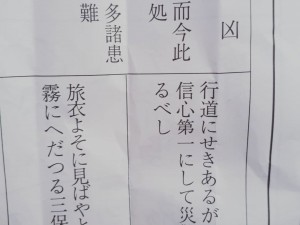 凶
而今此
処
多諸患
難
行道にせきあるが
信心第一にして災
るべし
旅衣よそに見ばやと
霧にへだつる三保